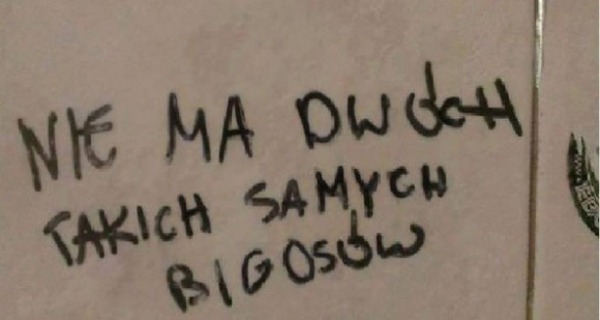 NIE MA DWÓCH
TAKICH SAMYCH
BIGOSÓW